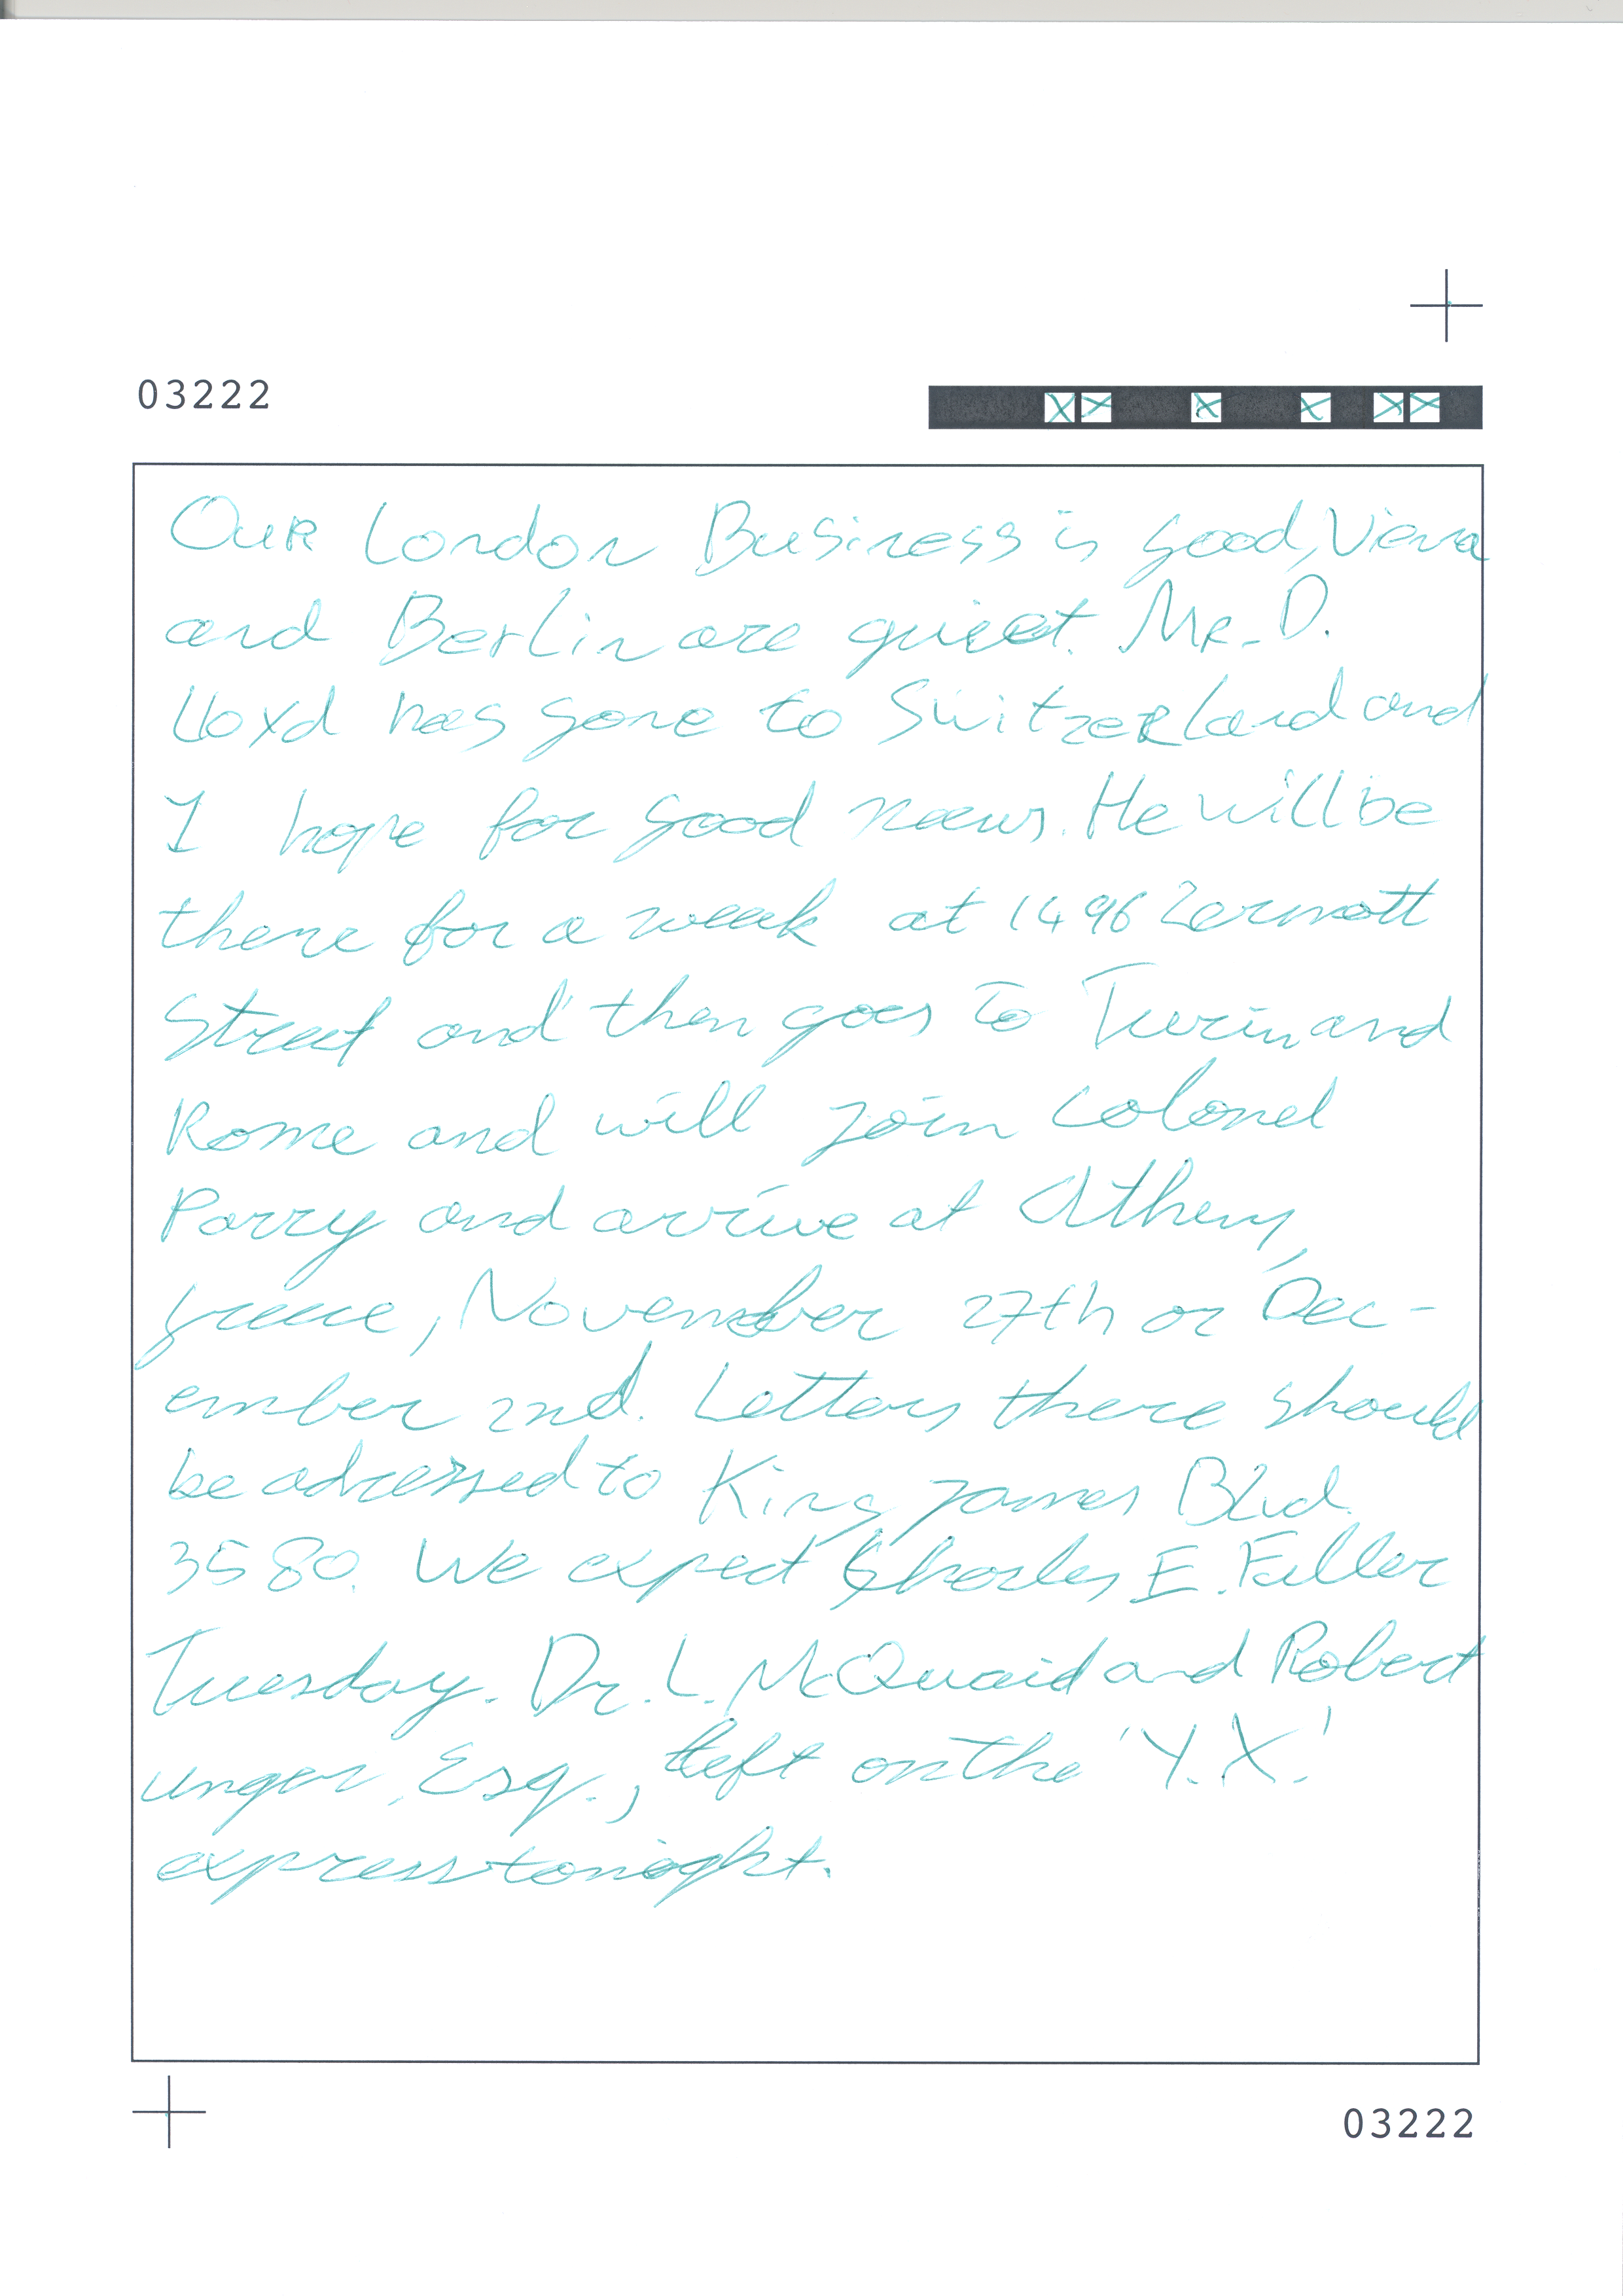 03222
Our London Business is good, Viena
and Berlin are quiet. Mr. D.
Lloyd has gone to Switzerland and
I hope for good news. He will be
there for a week at 1496 Zermott
Street and then goes to Turin and
Rome and will join Colonel
Parry and arrive at Athens,
Greece, November 27th or Dec-
ember 2nd. Letters there should
be adressed to King James Blvd.
3580. We expect Charles E. Fuller
Tuesday. Dr. L. McQuaid and Robert
Unger, Esq., left on the 'Y.X.'
express tonight.
03222